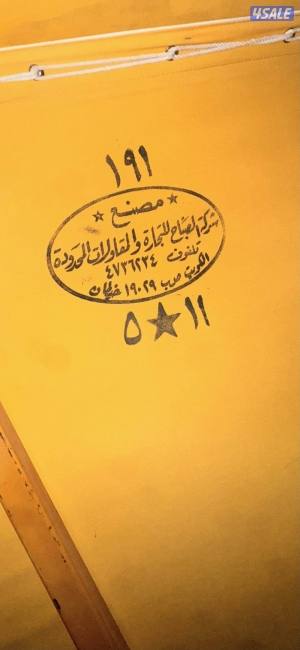 4SALE
١٩١
مصنع
شركة الصباح للتجارة والمقاولات المحدودة
تلفون
٤٧٣٦٢٣٤
الكويت ص.ب ١٩٠٢٩ خيطان
١١ ★ ٥